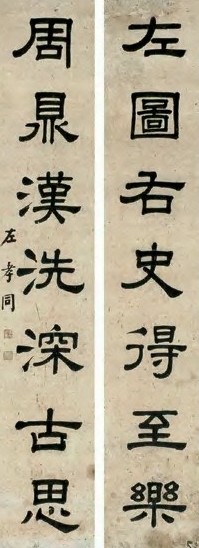 左圖右史得至樂
周鼎漢洗深古思
左孝同